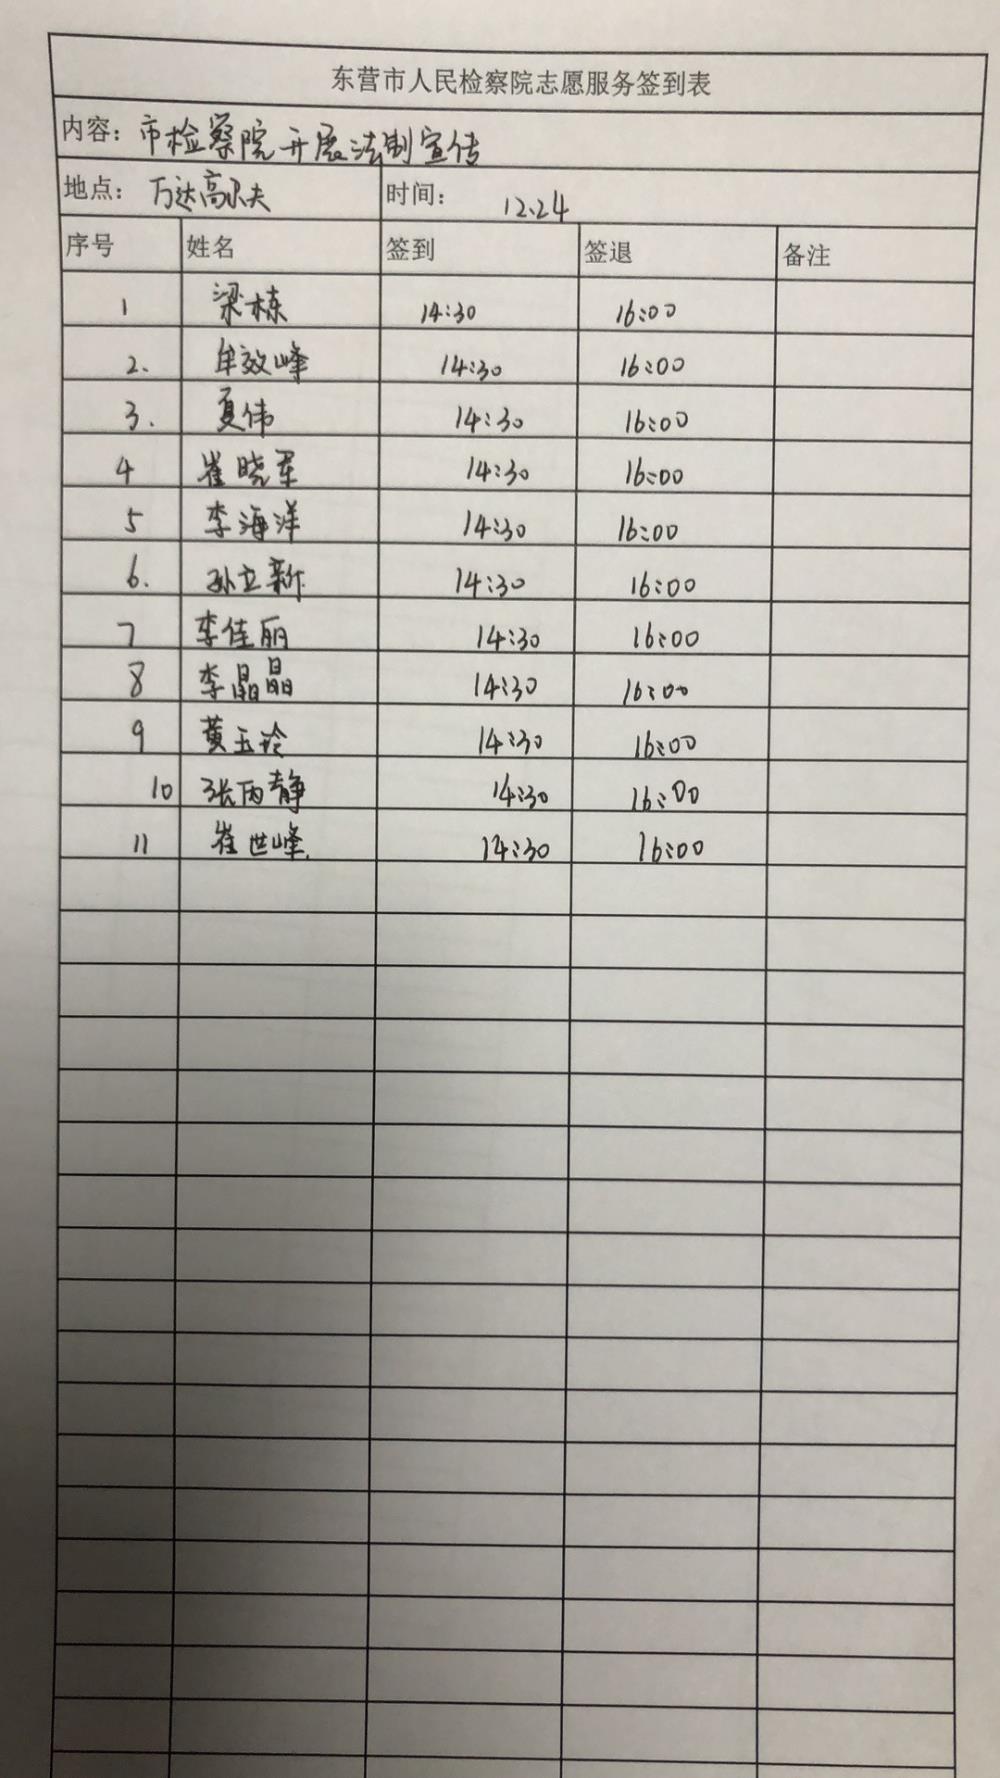 东营市人民检察院志愿服务签到表
内容：市检察院开展法制宣传
地点：万达高尔夫 时间：12.24
序号 姓名 签到 签退 备注
1 梁栋 14:30 16:00
2. 牟效峰 14:30 16:00
3. 夏伟 14:30 16:00
4 崔晓军 14:30 16:00
5 李海洋 14:30 16:00
6. 孙立新 14:30 16:00
7 李佳丽 14:30 16:00
8 李晶晶 14:30 16:00
9 黄玉玲 14:30 16:00
10 张丙静 14:30 16:00
11 崔世峰. 14:30 16:00